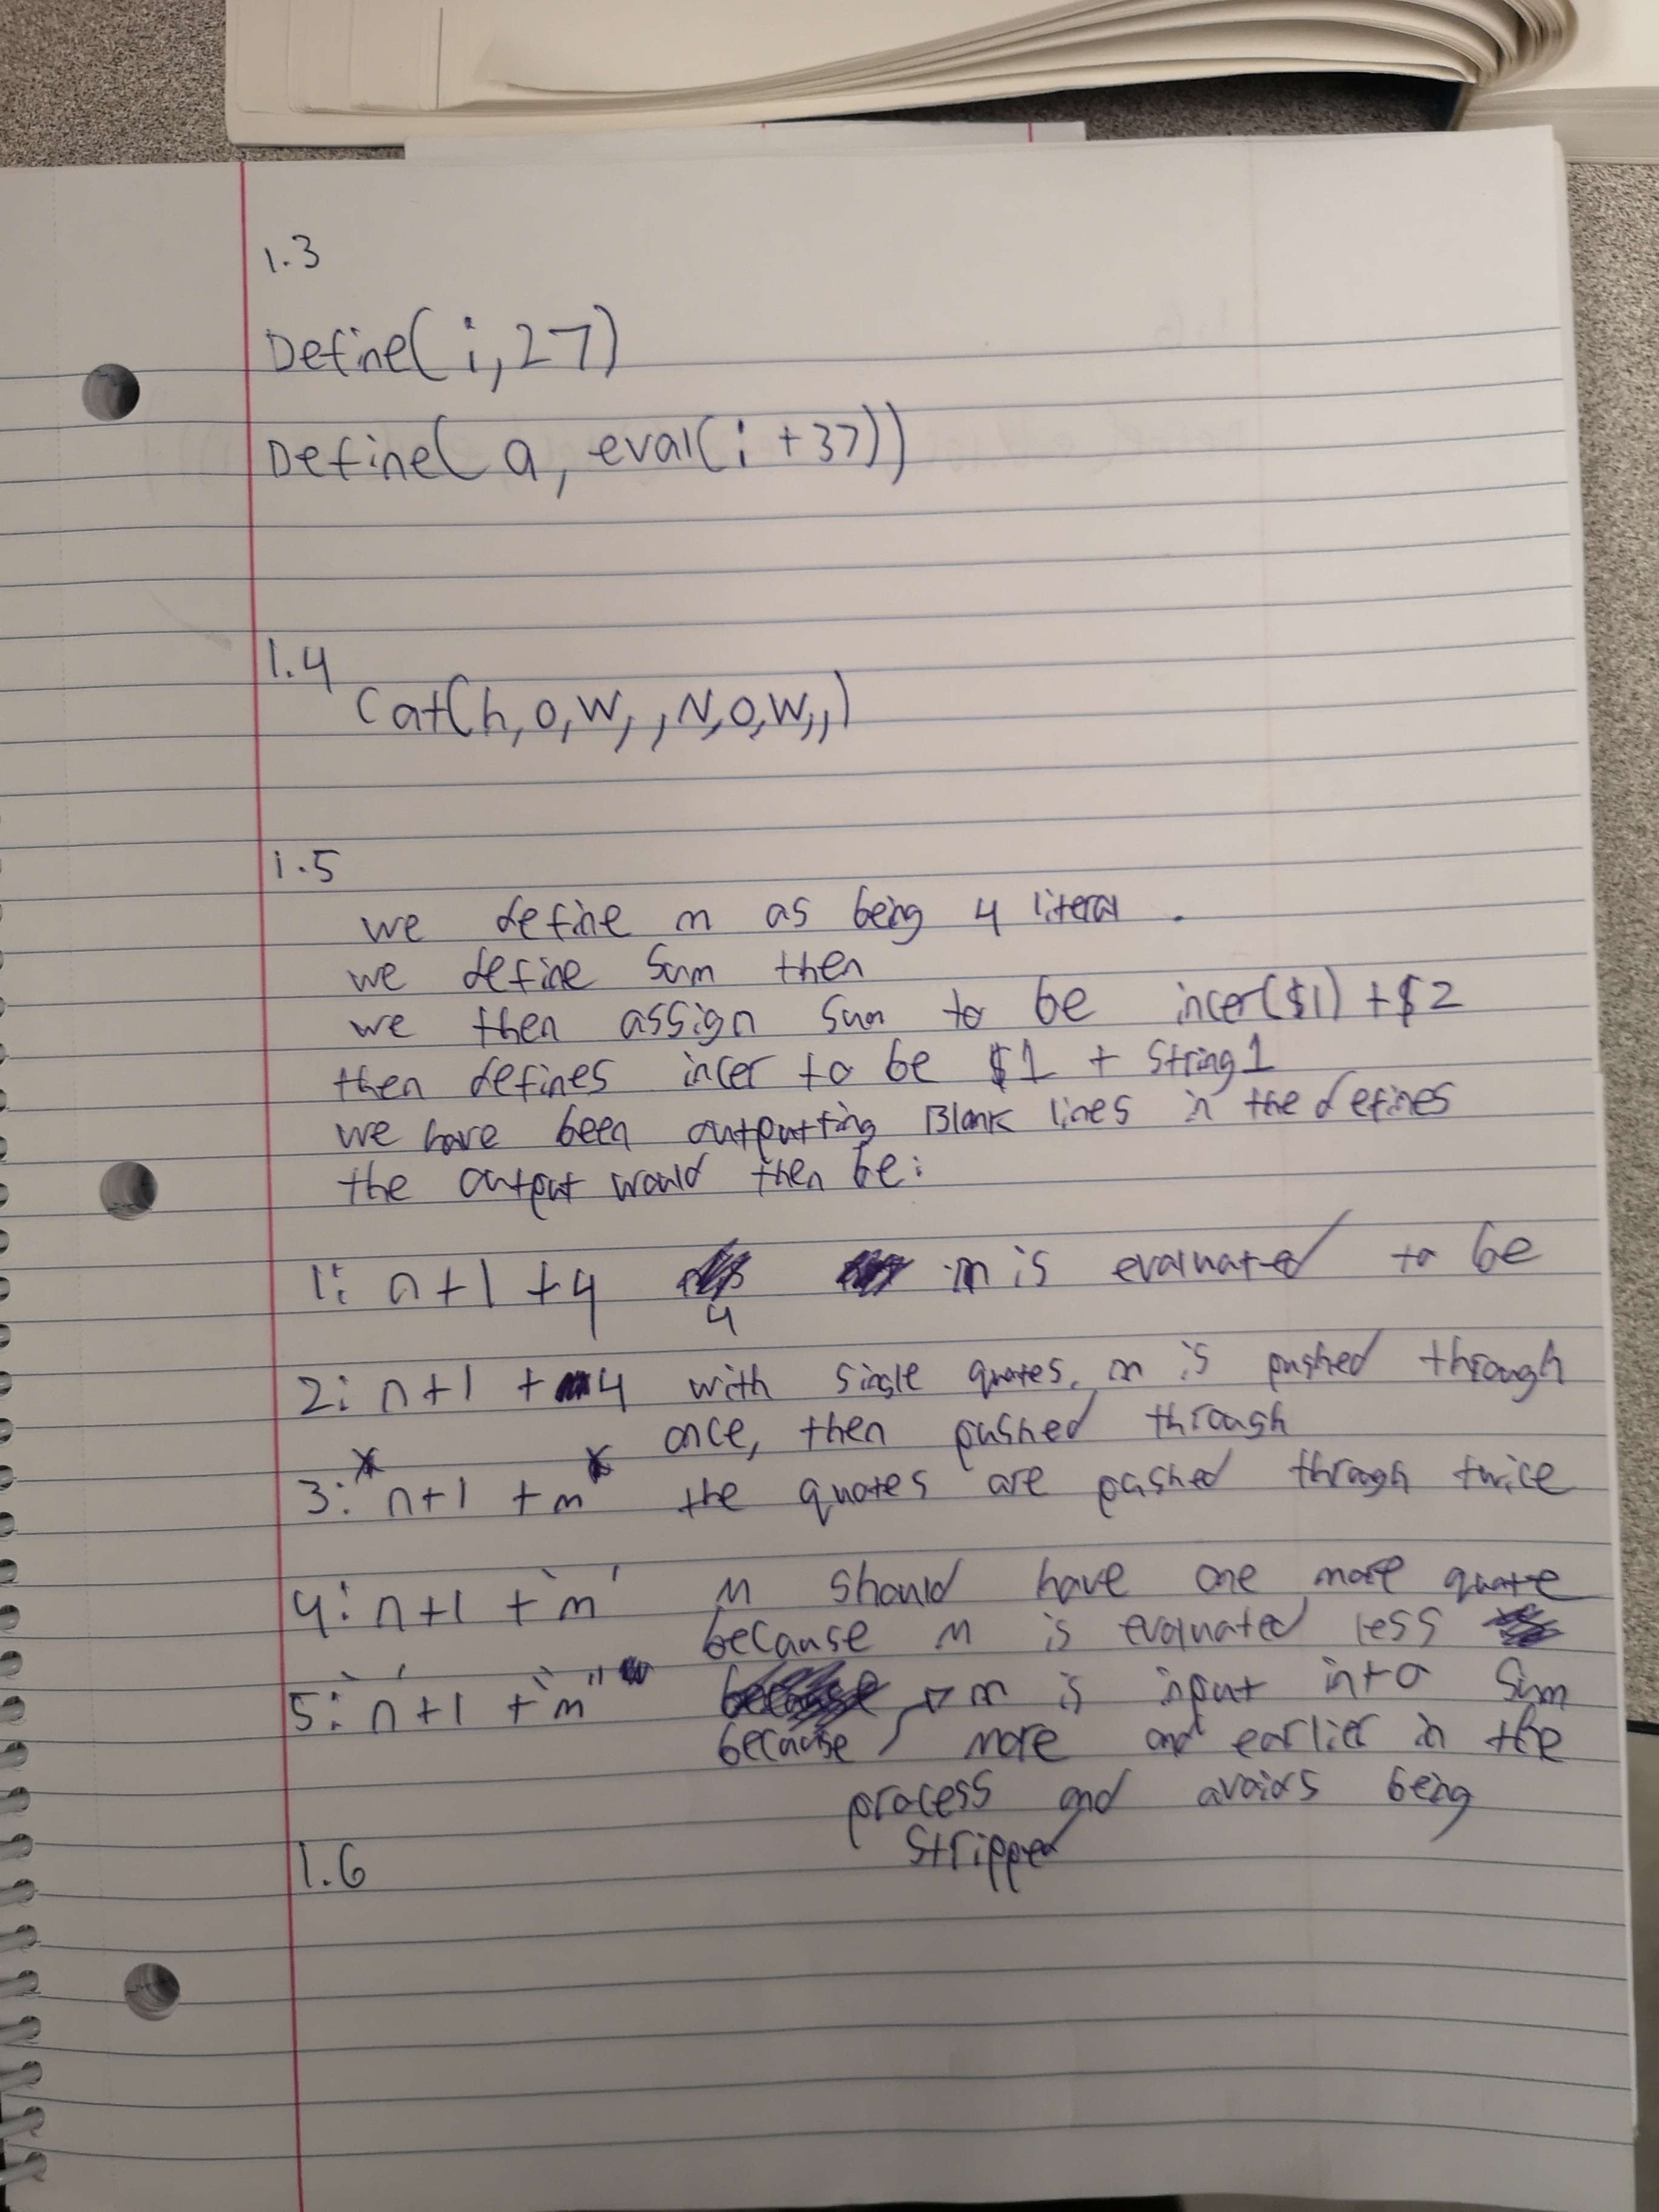 1.3
Define(i,27)
Define(a, eval(i+37))
1.4
Cat(h,o,W, ,N,O,W,,)
1.5
we define m as being 4 literal .
we define Sum then
we then assign Sum to be incer($1) +$2
then defines incer to be $1 + String1
we have been outputting Blank lines in the defines
the output would then be:
1: n+1 +4 m is evaluated to be
4
2: n+1 + 4 with single quotes, m is pushed through
once, then pushed through
3: n+1 +m the quotes are pushed through twice
4: n+1 +`m' m should have one more quote
because m is evaluated less
5: `n'+1 +``m'' m is input into Sum
because more and earlier in the
process and avoids being
Stripped
1.6